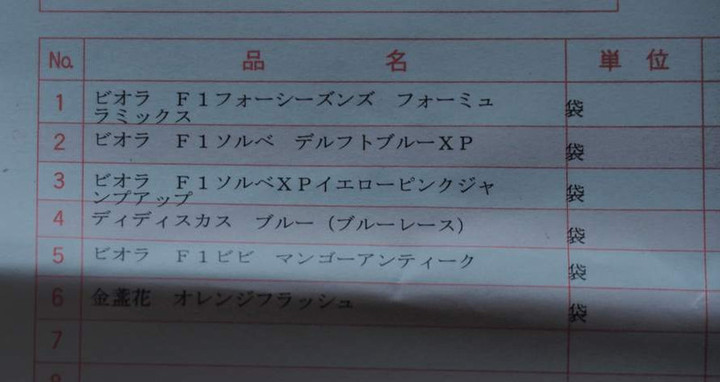 No. 品名 単位
1 ビオラ F1フォーシーズンズ フォーミュ 袋
ラミックス
2 ビオラ F1ソルベ デルフトブルーXP 袋
3 ビオラ F1ソルベXPイエローピンクジャ 袋
ンプアップ
4 ディディスカス ブルー（ブルーレース） 袋
5 ビオラ F1ビビ マンゴーアンティーク 袋
6 金盞花 オレンジフラッシュ 袋
7
8